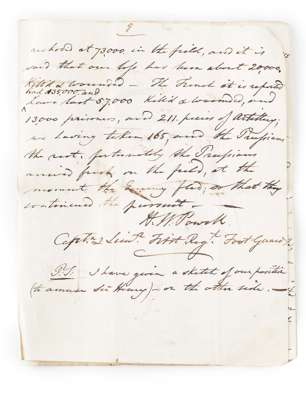 9
reached at 73,000 in the field, and it is
said that our loss had been about 20,000
kill'd & wounded — The French it is reported
had 135,000, and
have lost 57,000 kill'd & wounded, and
13,000 prisoners, and 211 pieces of Artillery,
we having taken 165, and the Prussians
the rest, fortunately the Prussians
arrived fresh on the field, at the
moment the Enemy fled, so that they
continued the pursuit. —
H. W. Powell
Captn. & Lieut. First Regt. Foot Guards
P.S. I have given a sketch of our position
(to amuse Sir Henry) — on the other side. —